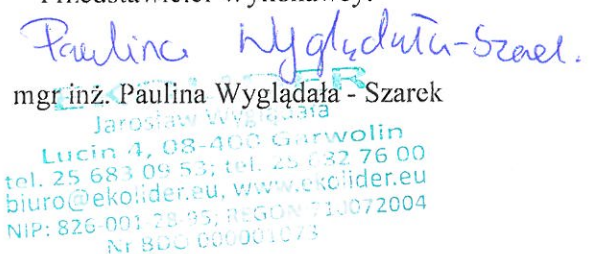 Przedstawiciel Wykonawcy:
Paulina Wyglądała-Szarek.
mgr inż. Paulina Wyglądała - Szarek
EKOLIDER
Jarosław Wyglądała
Lucin 4, 08-400 Garwolin
tel. 25 683 09 53; tel. 25 632 76 00
biuro@ekolider.eu, www.ekolider.eu
NIP: 826-001-28-95; REGON 710072004
Nr BDO 000001073